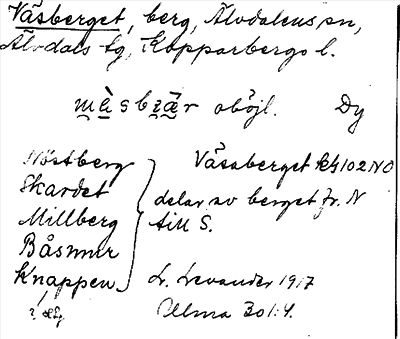 Väsberget, berg, Älvdalens sn,
Älvdals tg, Kopparbergs l.
mèsbɪ̯ä̀r oböjl. Dy
Höstberg
Skardet
Millberg
Båsmur
Knappen
Väsaberget RG102NO
delar av berget fr. N
till S.
L. Levander 1917
Ulma 301:4.